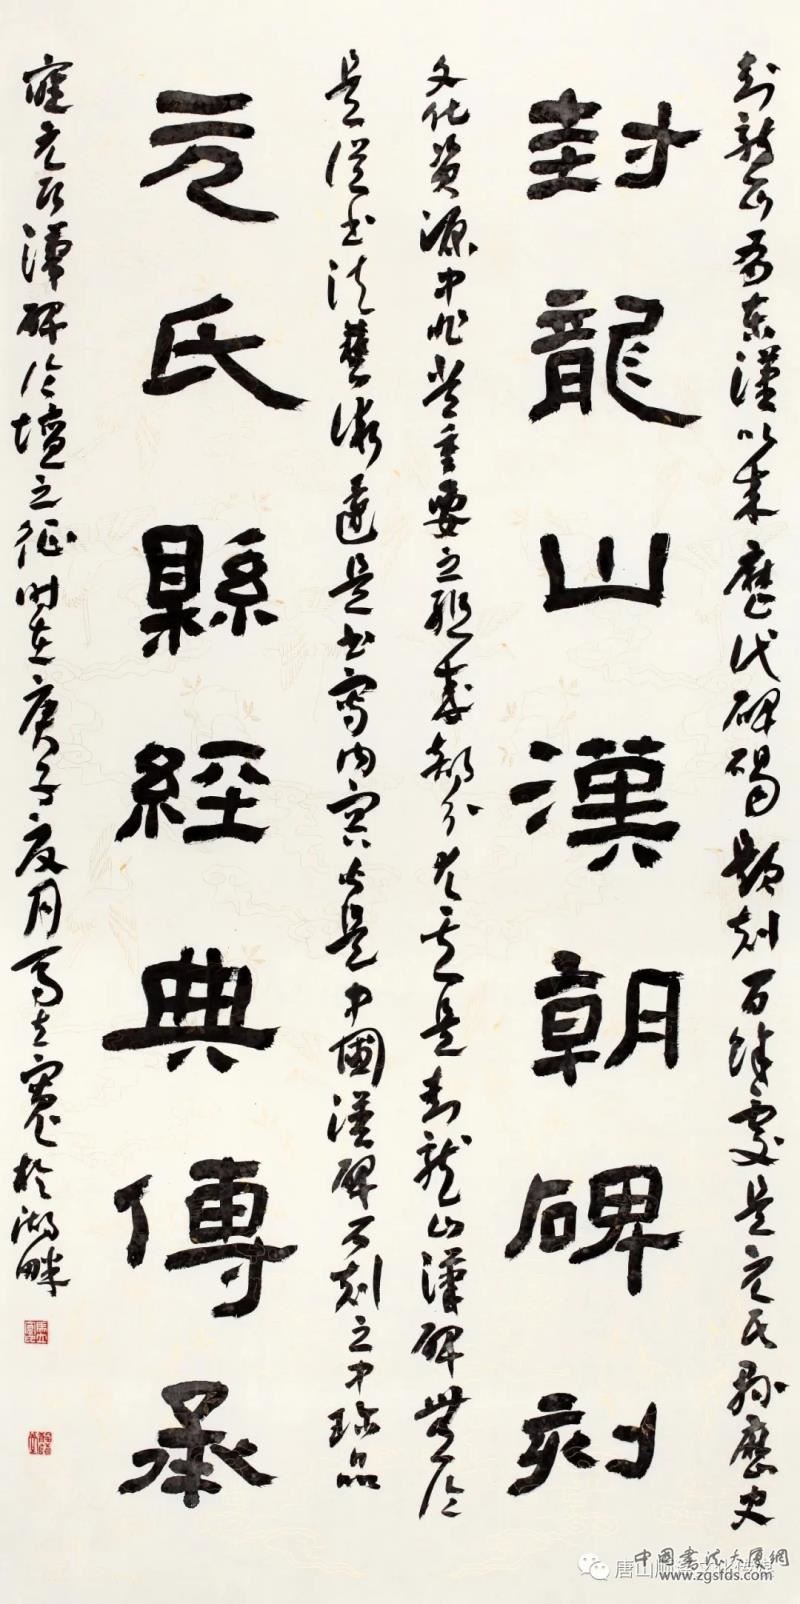 封龍山為東漢以來歷代碑碣題刻百餘處是元氏縣歷史
封龍山漢朝碑刻
文化資源中非常重要之組成部分尤其是封龍山漢碑無論
是從書法藝術還是書寫内容皆是中國漢碑石刻之中珍品
元氏縣經典傳承
應元氏漢碑論壇之征時在庚子夏月馬立寬於湖畔
中國書法大厦網
唐山
www.zgsfds.com